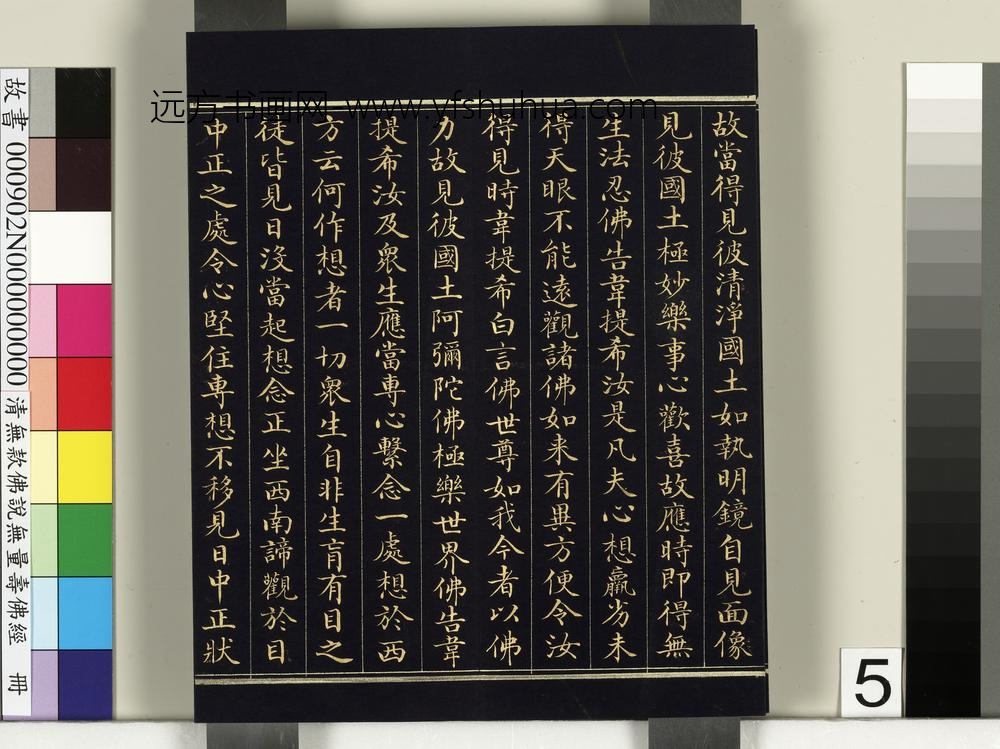 故當得見彼清淨國土如執明鏡自見面像
見彼國土極妙樂事心歡喜故應時即得無
生法忍佛告韋提希汝是凡夫心想羸劣未
得天眼不能遠觀諸佛如来有異方便令汝
得見時韋提希白言佛世尊如我今者以佛
力故見彼國土阿彌陀佛極樂世界佛告韋
提希汝及衆生應當專心繫念一處想於西
方云何作想者一切衆生自非生肓有目之
徒皆見日沒當起想念正坐西南諦觀於目
中正之處令心堅住專想不移見日中正狀
远方书画网 www.yfshuhua.com
故書 000902N000000000
清無款佛說無量壽佛經 冊
5